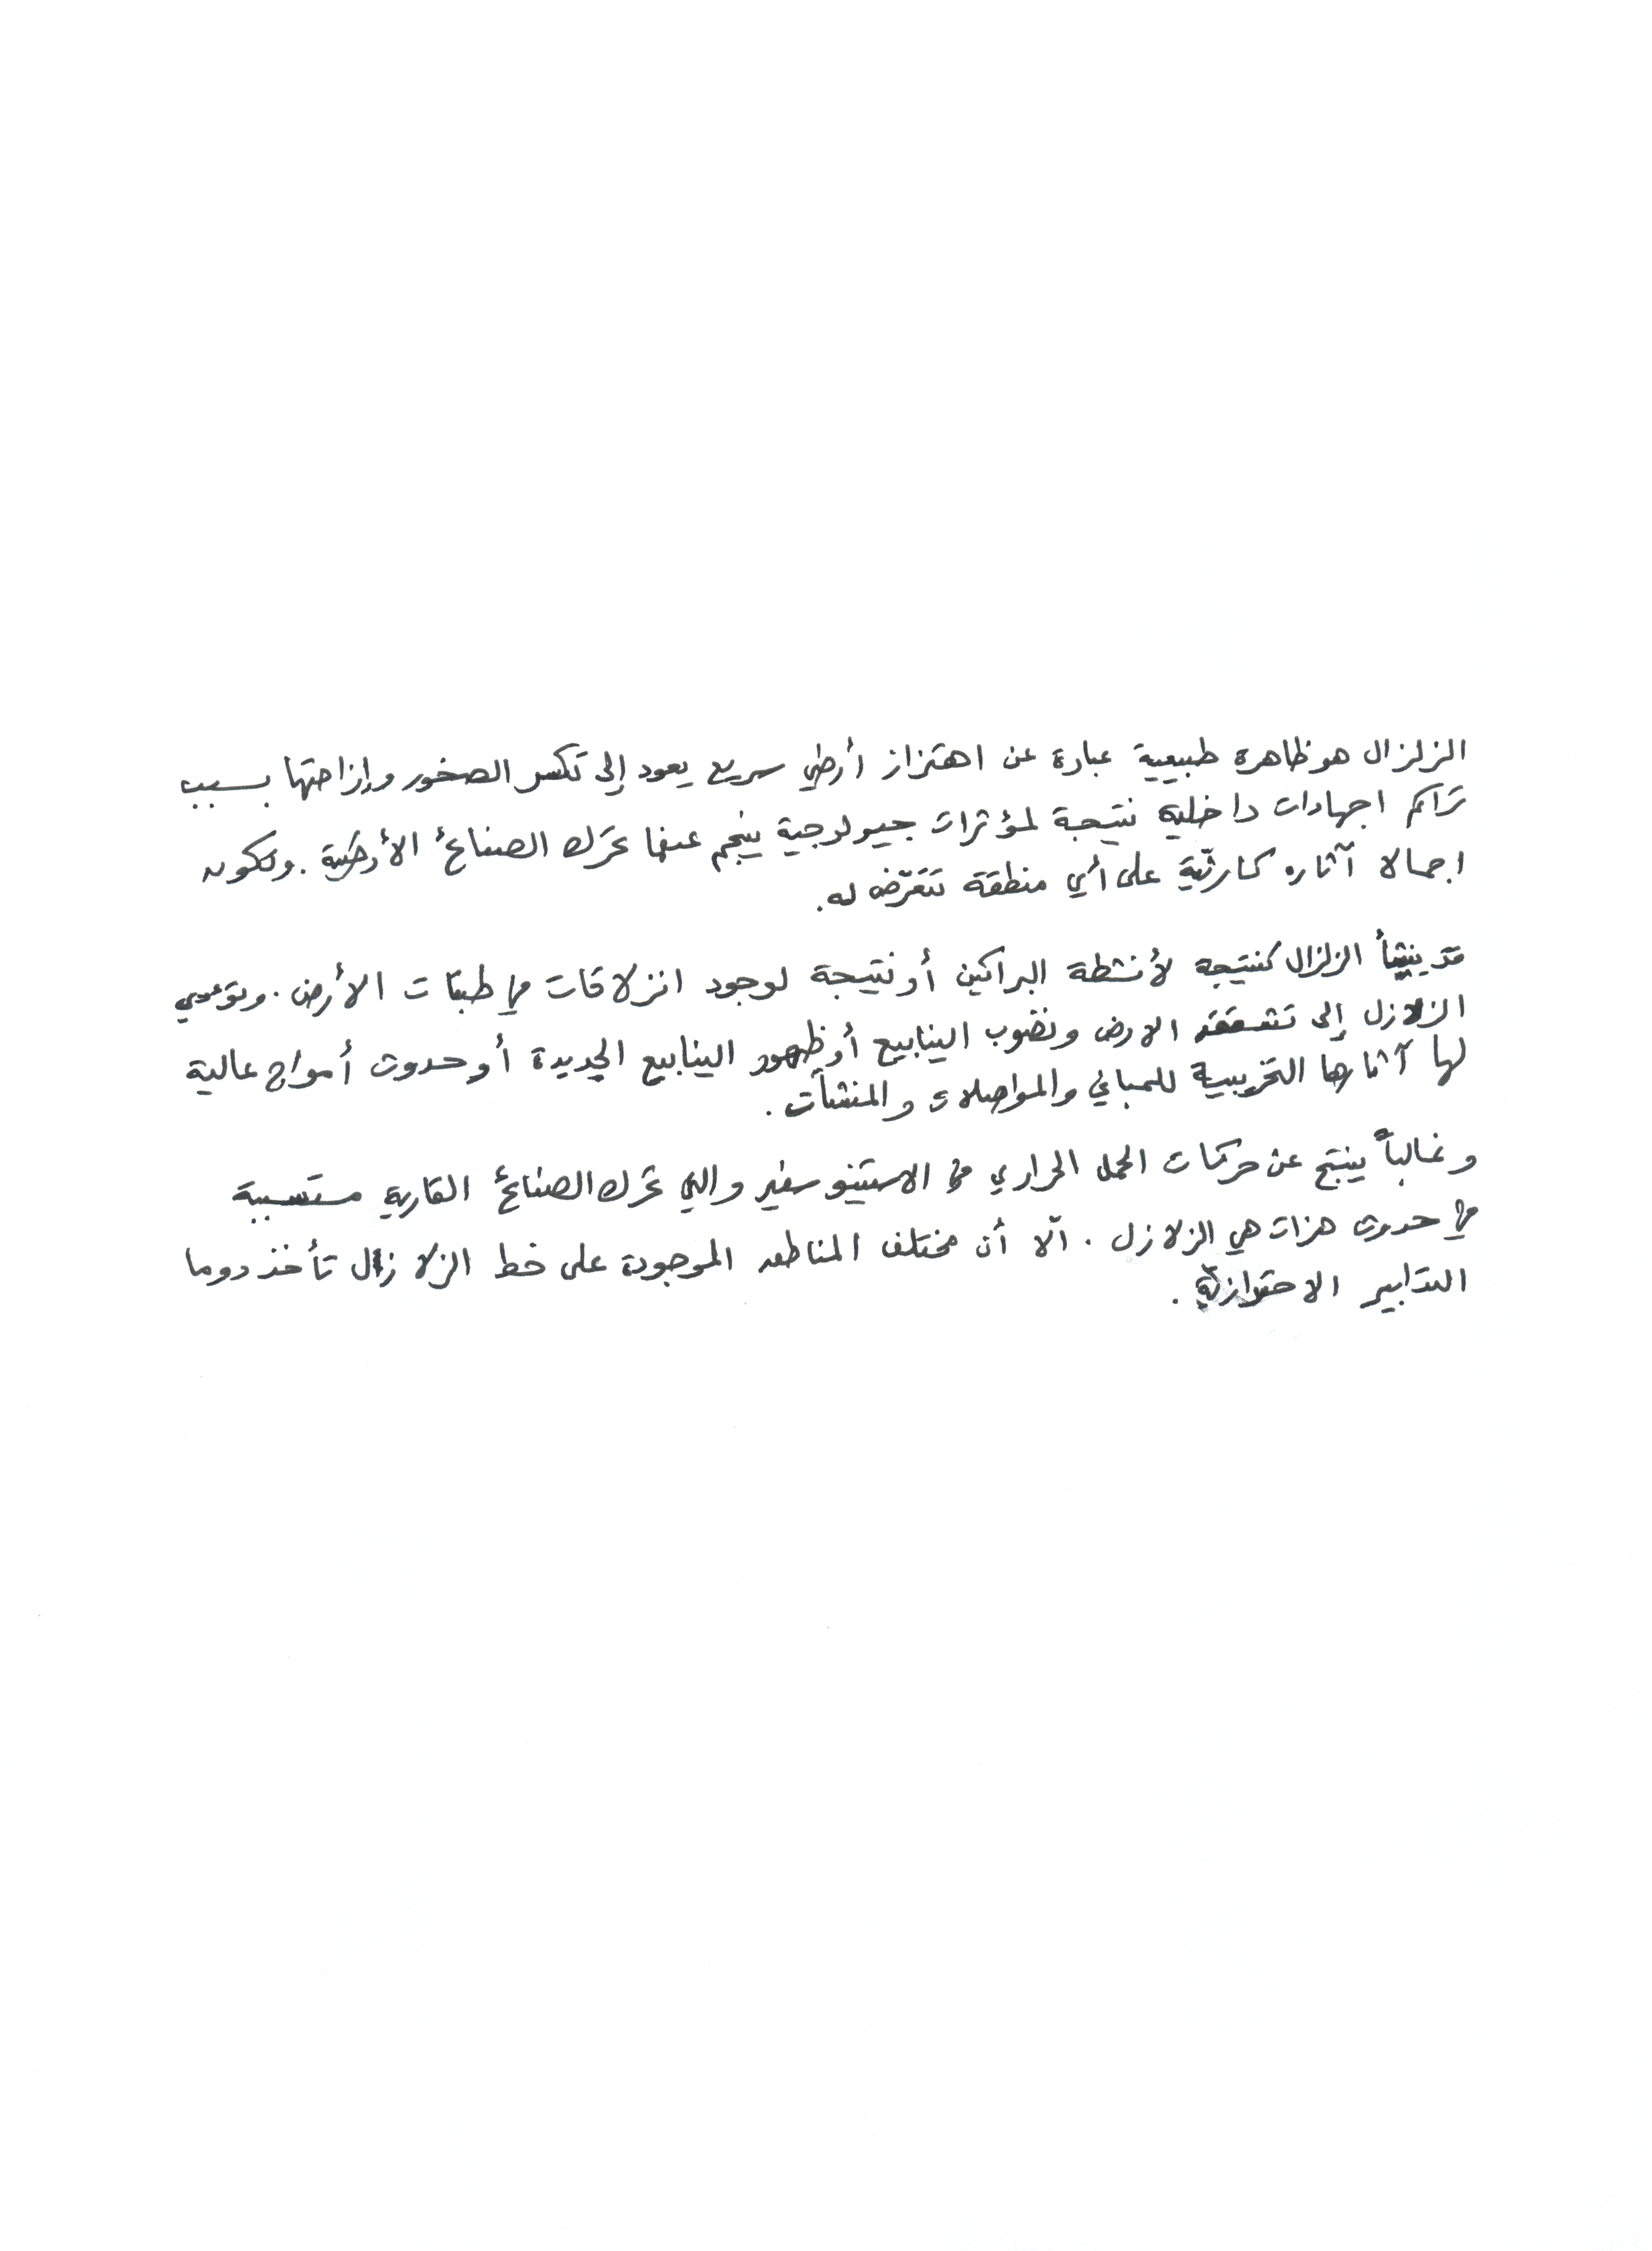 الزلزال هو ظاهرة طبيعية عبارة عن اهتزاز أرضي سريع يعود إلى تكسر الصخور وإزاحتها بسبب
تراكم اجهادات داخلية نتيجة لمؤثرات جيولوجية ينجم عنها تحرك الصفائح الأرضية. وتكون
اجمالا آثاره كارثية على أي منطقة تتعرّض له.
قد ينشأ الزلزال كنتيجة لأنشطة البراكين أو نتيجة لوجود انزلاقات في طبقات الأرض. وتؤدي
الزلازل إلى تشقق الارض ونضوب الينابيع أو ظهور الينابيع الجديدة أو حدوث أمواج عالية
لها آثارها التخريبية للمباني والمواصلات والمنشآت.
وغالباً ينتج عن حركات الحمل الحراري في الاستينوسفير والتي تحرك الصفائح القارية متسببة
في حدوث هزات هي الزلازل. الّا أن مختلف المناطق الموجودة على خط الزلازل تأخذ دوما
التدابير الاحترازية.